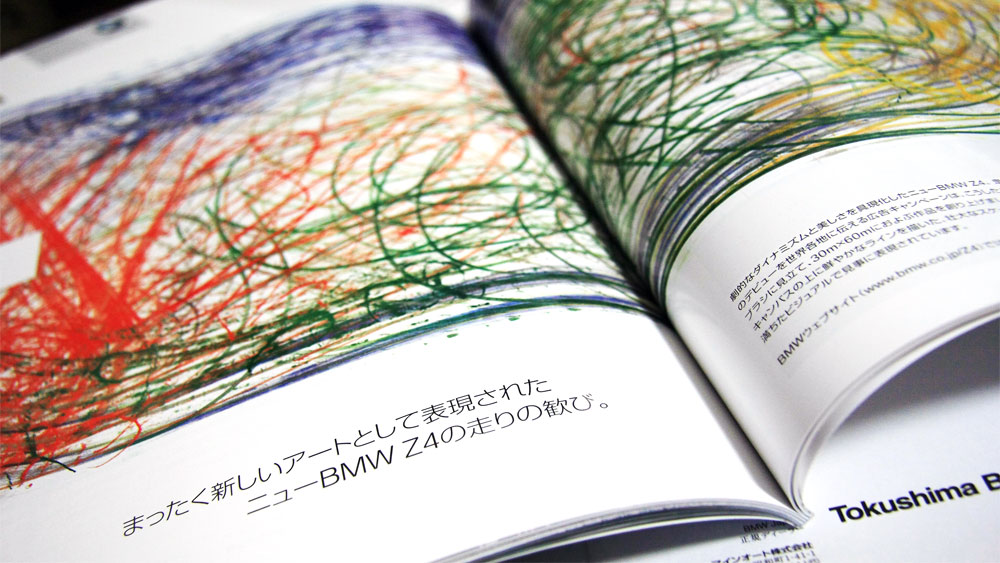 まったく新しいアートとして表現された
ニューBMW Z4の走りの歓び。
劇的なダイナミズムと美しさを具現化したニューBMW Z4。
のデビューを世界各地に伝える広告キャンペーンは、こうした
ブラシに見立て、30m×60mにおよぶ作品を創り上げま
キャンバスの上に鮮やかなラインを描いた、壮大なスケ
満ちたビジュアルで見事に表現されています。
BMWウェブサイト(www.bmw.co.jp/Z4)で
Tokushima B
BMW
正規ディーラー
インオート株式会社